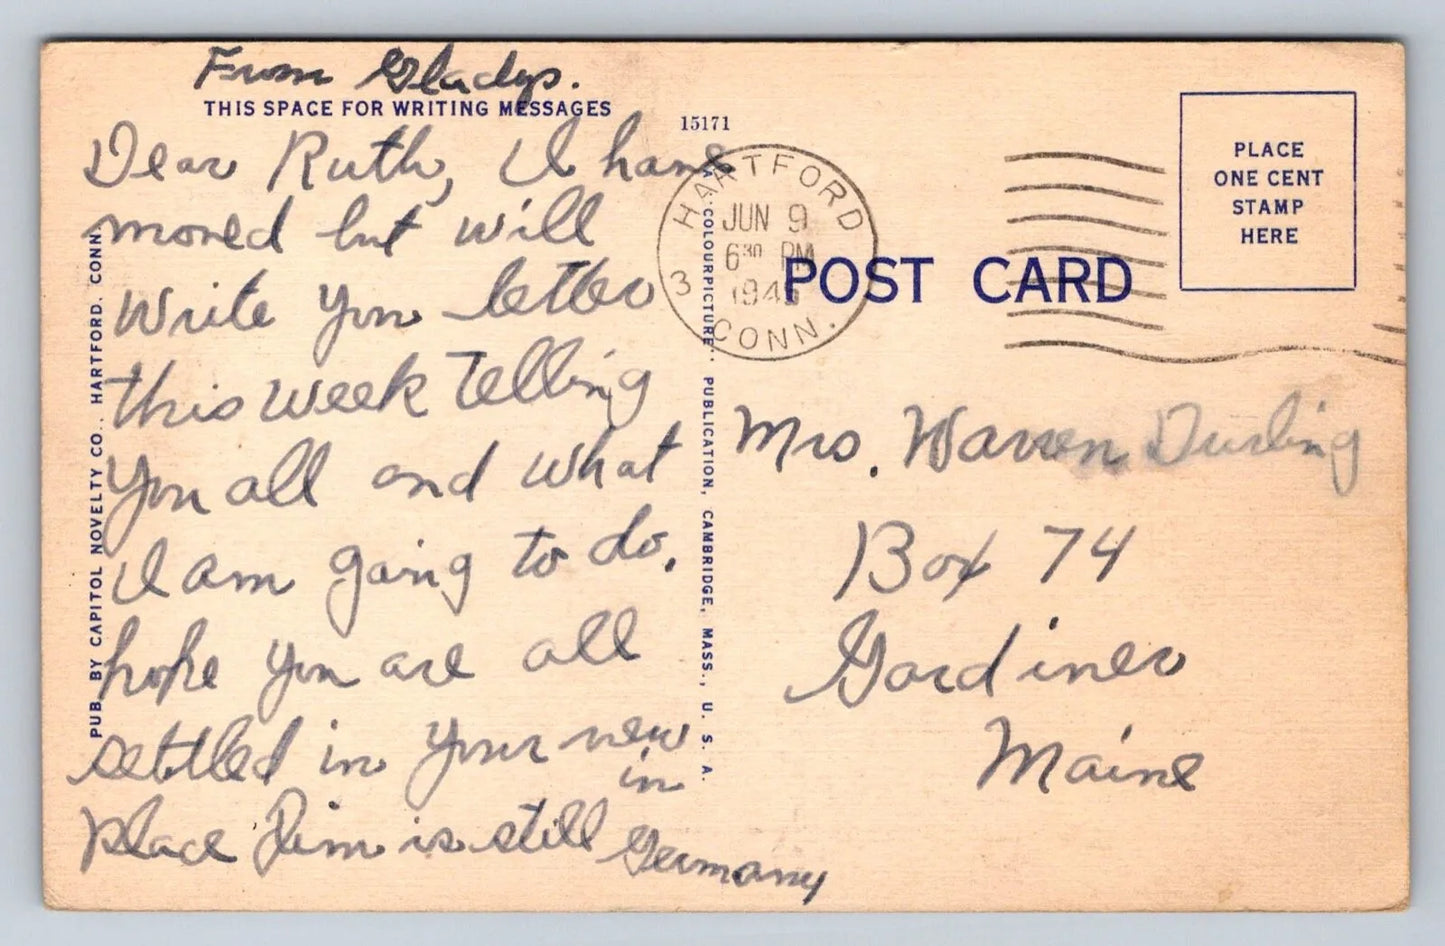 From Gladys.
THIS SPACE FOR WRITING MESSAGES
Dear Ruth, I have
moved but will
write you letter
this week telling
you all and what
I am going to do.
hope you are all
settled in your new
place Jim is still in
Germany
PUB. BY CAPITOL NOVELTY CO., HARTFORD, CONN.
15171
"COLOURPICTURE" PUBLICATION, CAMBRIDGE, MASS., U. S. A.
HARTFORD
JUN 9
6 30 PM
3
CONN.
POST CARD
PLACE
ONE CENT
STAMP
HERE
Mrs. Warren Durling
Box 74
Gardiner
Maine